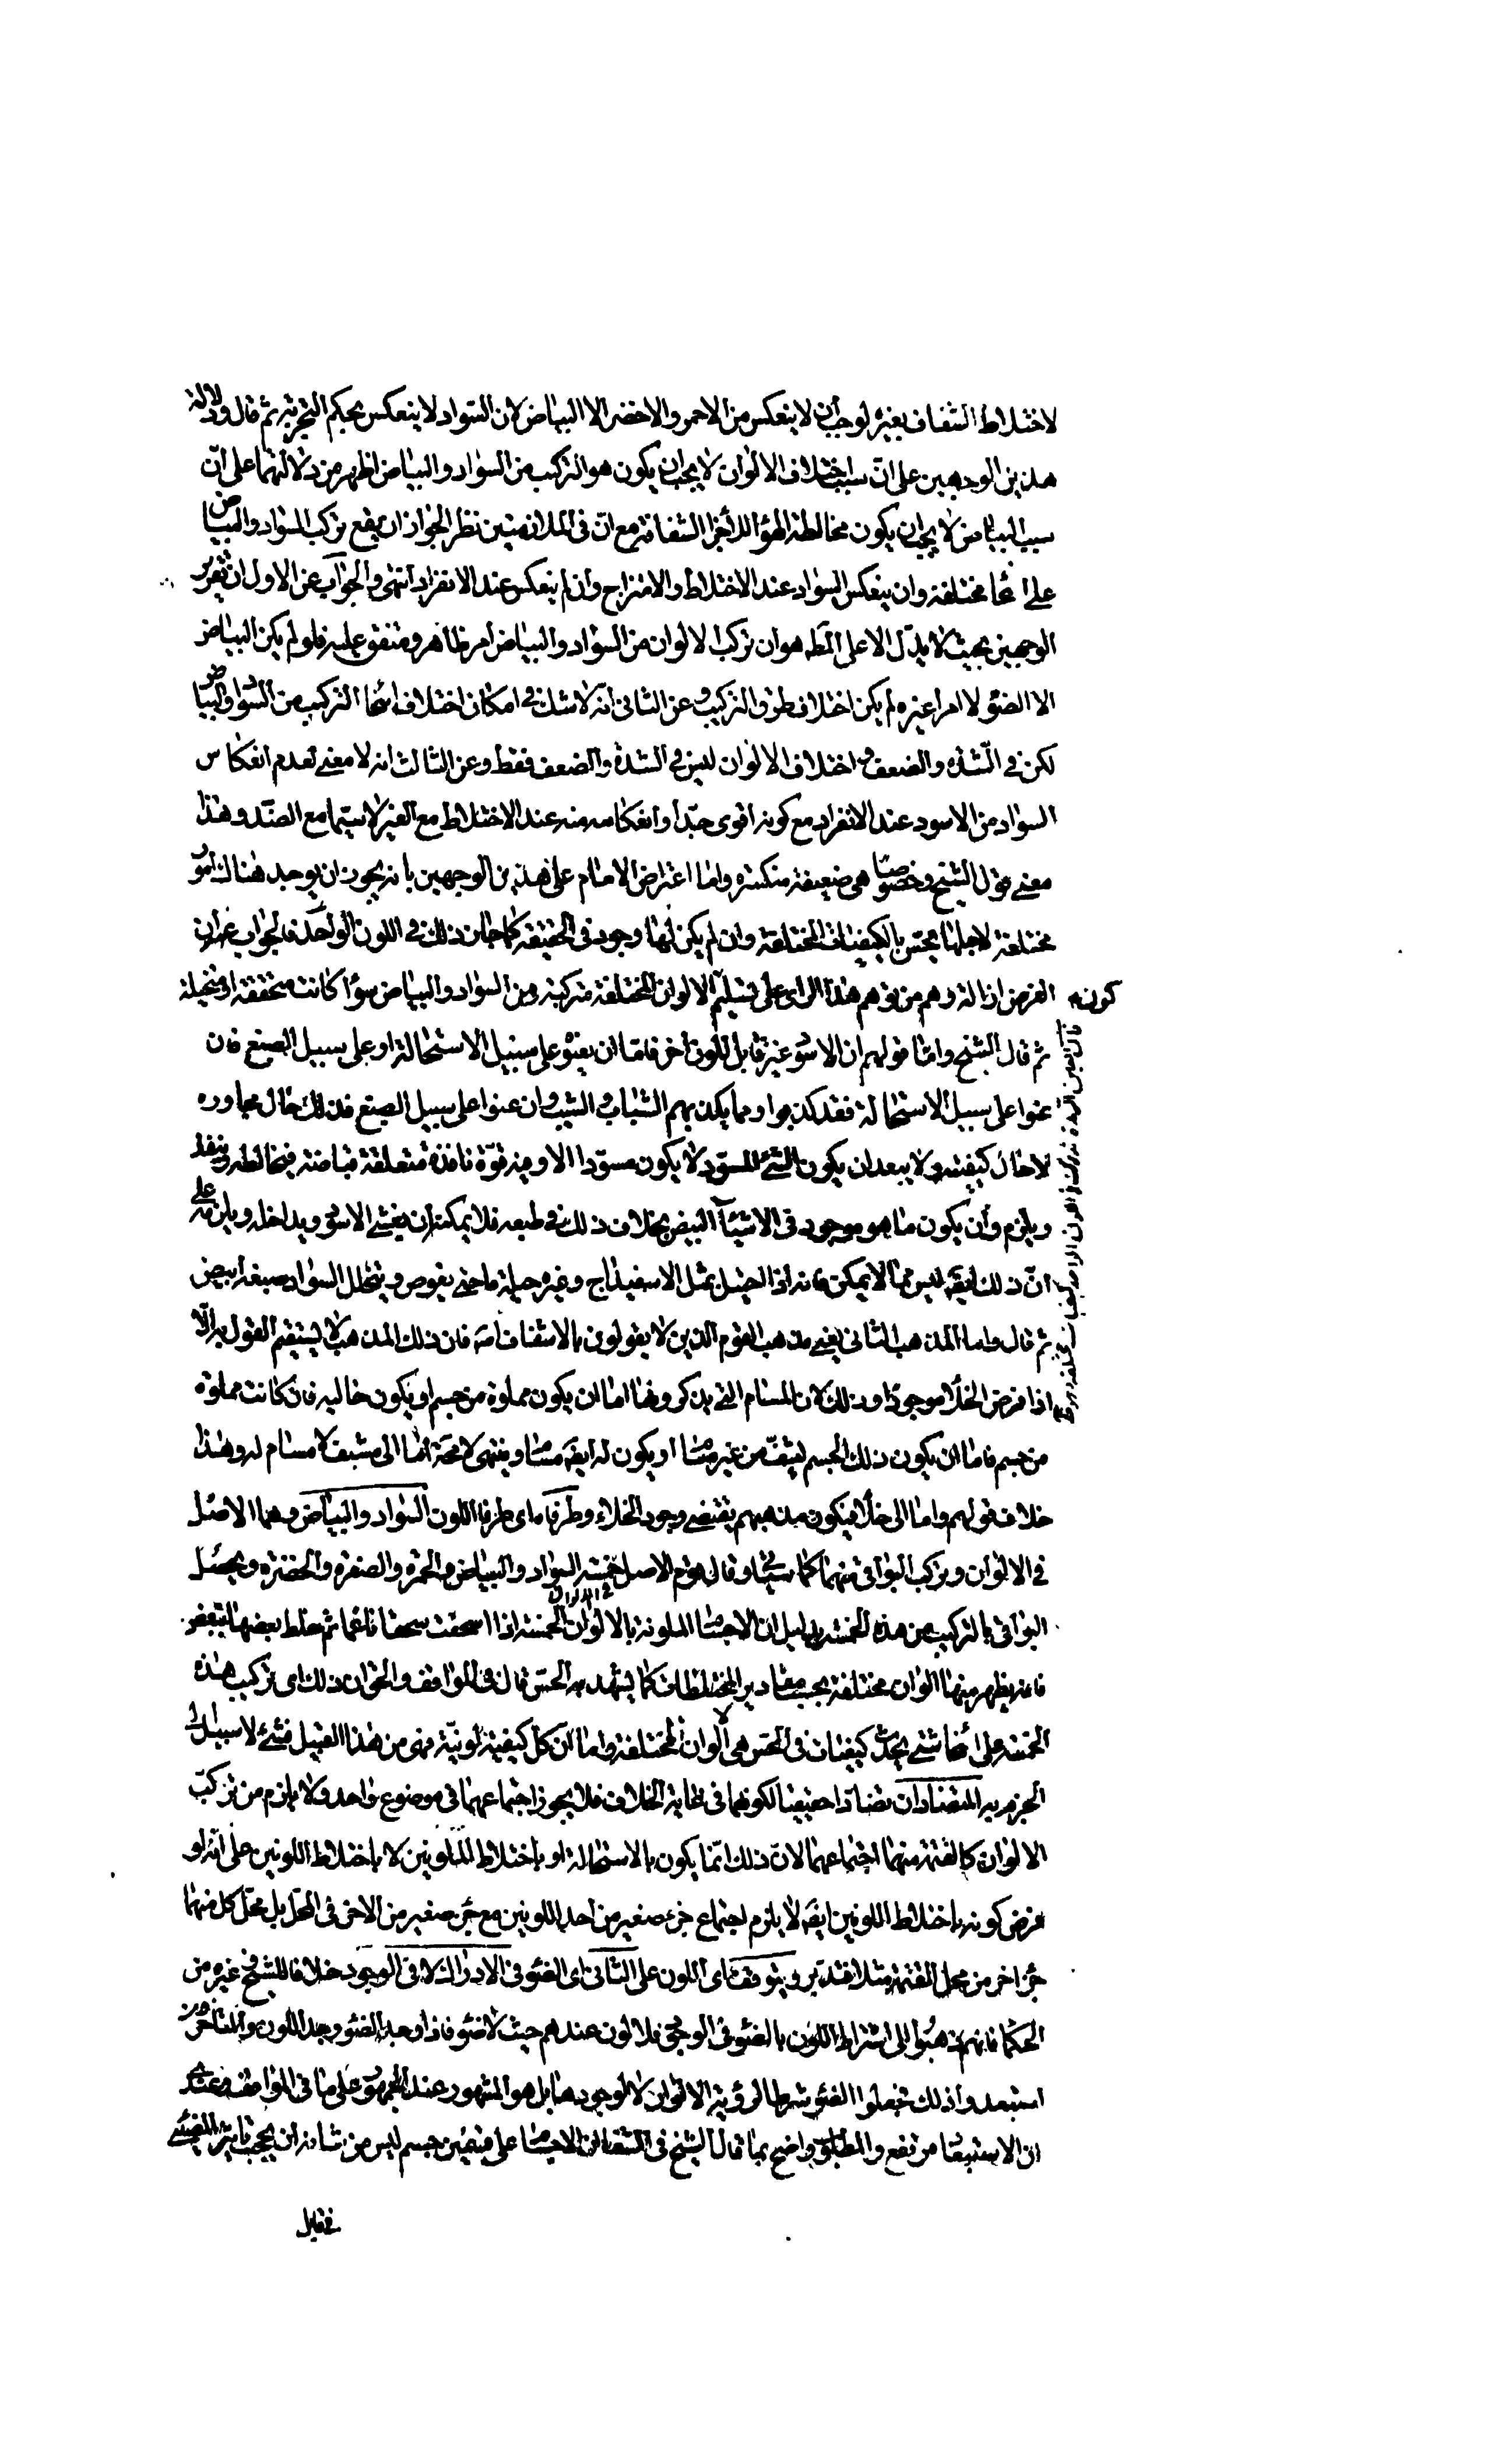 لاختلاط الشفاف بغيره لوجب أن لا ينعكس من الاحمر والاخضر الا البياض لان السواد لا ينعكس بحكم التجربة ثم قال ودلالة
هذين الوجهين على انّ سبب اختلاف الالوان لا يجب ان يكون هو التركيب من السواد والبياض اظهر من دلالتهما على انّ
سبب البياض لا يجب ان يكون مخالطة الهواء للاجزاء الشفافة مع انّ فى الملازمتين نظر الجواز ان يقع تركب السواد والبياض
على انحاء مختلفة وان ينعكس السواد عند الاختلاط والامتزاج وان لم ينعكس عند الانفراد انتهى والجواب عن الاول ان تقرير
الوجهين بحيث لا يدلّ الا على المط هو ان تركب الالوان من السواد والبياض امر ظاهر ومتفق عليه فلو لم يكن البياض
الا الضوء لا امرا غيره لم يكن اختلاف طرق التركيب وعن الثانى انّه لا شك فى امكان اختلاف انحاء التركيب من السواد والبياض
لكن فى الشدة والضعف واختلاف الالوان ليس فى الشدة والضعف فقط وعن الثالث انه لا معنى لعدم انعكاس
السواد من الاسود عند الانفراد مع كونه اقوى جدّا وانعكاسه منه عند الاختلاط مع الغير لا سيّما مع الضدّ وهذا
معنى قول الشيخ وخصوصا هى ضعيفة منكسرة واما اعتراض الامام على هذين الوجهين بانه يجوز ان يوجد هناك امور
مختلفة لاجلها يحسّ بالكيفيات المختلفة وان لم يكن لها وجود فى الحقيقة كما جاز ذلك فى اللون الواحد فالجواب عنه ان
الغرض ازالة وهم من توهم هذا الراى على تسليم كون الالوان المختلفة متركبة من السواد والبياض سواء كانت متحققة او متخيلة
ثم قال الشيخ وامّا قولهم ان الاسود غير قابل للون آخر فامّا ان يعنوه على سبيل الاستحالة او على سبيل الصبغ فان
عنوا على سبيل الاستحالة فقد كذبوا ومما يكذبهم الشباب والشيب وان عنوا على سبيل الصبغ فذلك حال مجاورة
لا حال كيفية ولا يبعد ان يكون الشئ المسوّد لا يكون مسوّدا الا وفيه قوّة نافذة متعلقة قباضة فيخالطه وينفذ
ويلزم وأن يكون ما هو موجود فى الاشياء البيض بخلاف ذلك فى طبعه فلا يمكنه ان يغشى الاسود ويداخله ويلزمه على
انّ ذلك ايضه ليس مما لا يمكن فانه اذا احتيل بمثل الاسفيداج وغيره حيلة ما حتى يغوص ويتخلل السواد صبغه ابيض
ثم قال واما المذهب الثانى يعنى مذهب القوم الذين لا يقولون بالاشفاف امّه فان ذلك المذهب لا يستقيم القول به الّا
اذا فرض الخلأ موجودا وذلك لان المسام التى يذكرونها اما ان يكون مملوة من جسم او يكون خالية فان كانت مملوة
من جسم فاما ان يكون ذلك الجسم يشفّ من غير مسام او يكون له ايضه مسام وينتهى لا محة امّا الى مشف لا مسام له وهذا
خلاف قولهم واما الى خلأ فيكون مذهبهم يقتضى وجود الخلاء وطرفاه اى طرفا اللون السواد والبياض وهما الاصل
فى الالوان وتركب البواقى منهما كما سيجئ وقال قوم الاصل خمسة السواد والبياض والحمرة والصفرة والخضرة ويحصل
البواقى بالتركيب من هذه الخمسة بدليل ان الاجسام الملونة بالالوان الخمسة اذا سحقت سحقا ناعما ثم خلط بعضها ببعض
فانه يظهر منها الوان مختلفة بحسب مقادير المختلطات كما يشهد به الحسّ قال فى المواقف والحق ان ذلك اى تركيب هذه
الخمسة على انحاء شتى يحدث كيفيات فى الحسّ هى الالوان المختلفة واما ان كل كيفية لونيّة فهى من هذا القبيل فشئ لا سبيل الى
الجزم به المتضادان تضادّا حقيقيا لكونهما فى غاية الخلاف فلا يجوز اجتماعهما فى موضوع واحد ولا يلزم من تركب
الالوان كالغتمة منهما اجتماعهما لانّ ذلك انّما يكون بالاستحالة او باختلاط الملونين لا باختلاط اللونين على انّه لو
فرض كونه باختلاط اللونين ايضه لا يلزم اجتماع جزء صغير من احد اللونين مع جزء صغير من الاخر فى المحل بل محل كل منهما
جزء اخر من محل الغتمة مثلا فتدبر ويتوقف اى اللون على الثانى اى الضوء فى الادراك لا فى الوجود خلافا للشيخ وغيره من
الحكماء فانهم ذهبوا الى اشتراط اللون بالضوء فى الوجود فلا لون عندهم حيث لا ضوء فاذا وجد الضوء وجد اللون والمتاخرون
استبعدوا ذلك فجعلوا الضوء شرطا لرؤية الالوان لا لوجودها بل هو المشهور عند الجمهور على ما فى المواقف وعندى
ان الاستبعاد مرتفع والمطلوب واضح بما قال الشيخ فى الشفاء ان الاجسام على قسمين جسم ليس من شانه ان يحجب تاثير المضئ
فى قابل